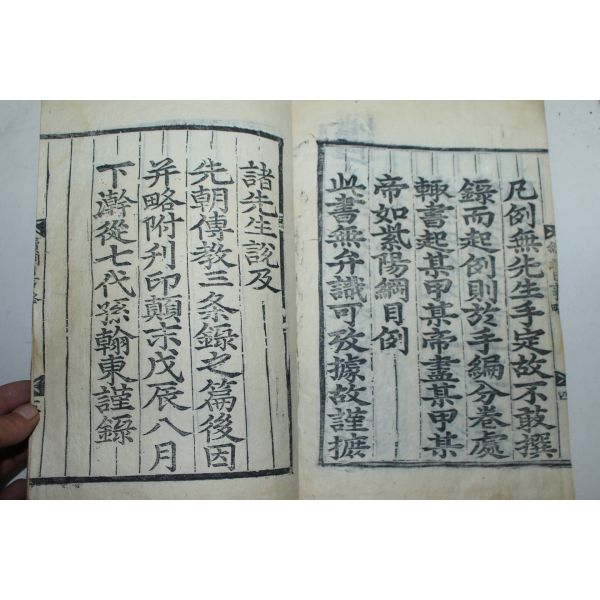 凡例無先生手定故不敢撰
錄而起例則於手編分卷處
輙書起某甲某帝盡某甲某
帝如紫陽綱目例
此書無弁識可攷據故謹摭
諸先生說及
先朝傳教三条錄之篇後因
并略附刋印顛末戊辰八月
下瀚從七代孫翰東謹錄